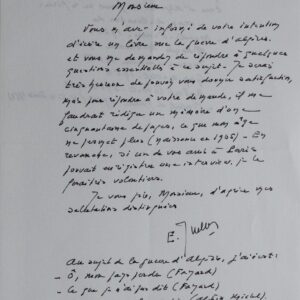 Monsieur
Vous m'avez informé de votre intention
d'écrire un livre sur la guerre d'Algérie
et vous me demandez de répondre à quelques
questions essentielles à ce sujet. Je serais
très heureux de pouvoir vous donner satisfaction,
mais pour répondre à votre demande, il me
faudrait rédiger un mémoire d'une
cinquantaine de pages, ce que mon âge
ne permet plus (naissance en 1905) - En
revanche, si un de vos amis à Paris
pouvait enregistrer une interview, je le
ferais volontiers.
Je vous prie, Monsieur, d'agréer mes
salutations distinguées
E.
Au sujet de la guerre d'Algérie, j'ai écrit :
- Ô, mon pays perdu (Fayard)
- Ce que je n'ai pas dit (Fayard)
(Albin Michel)